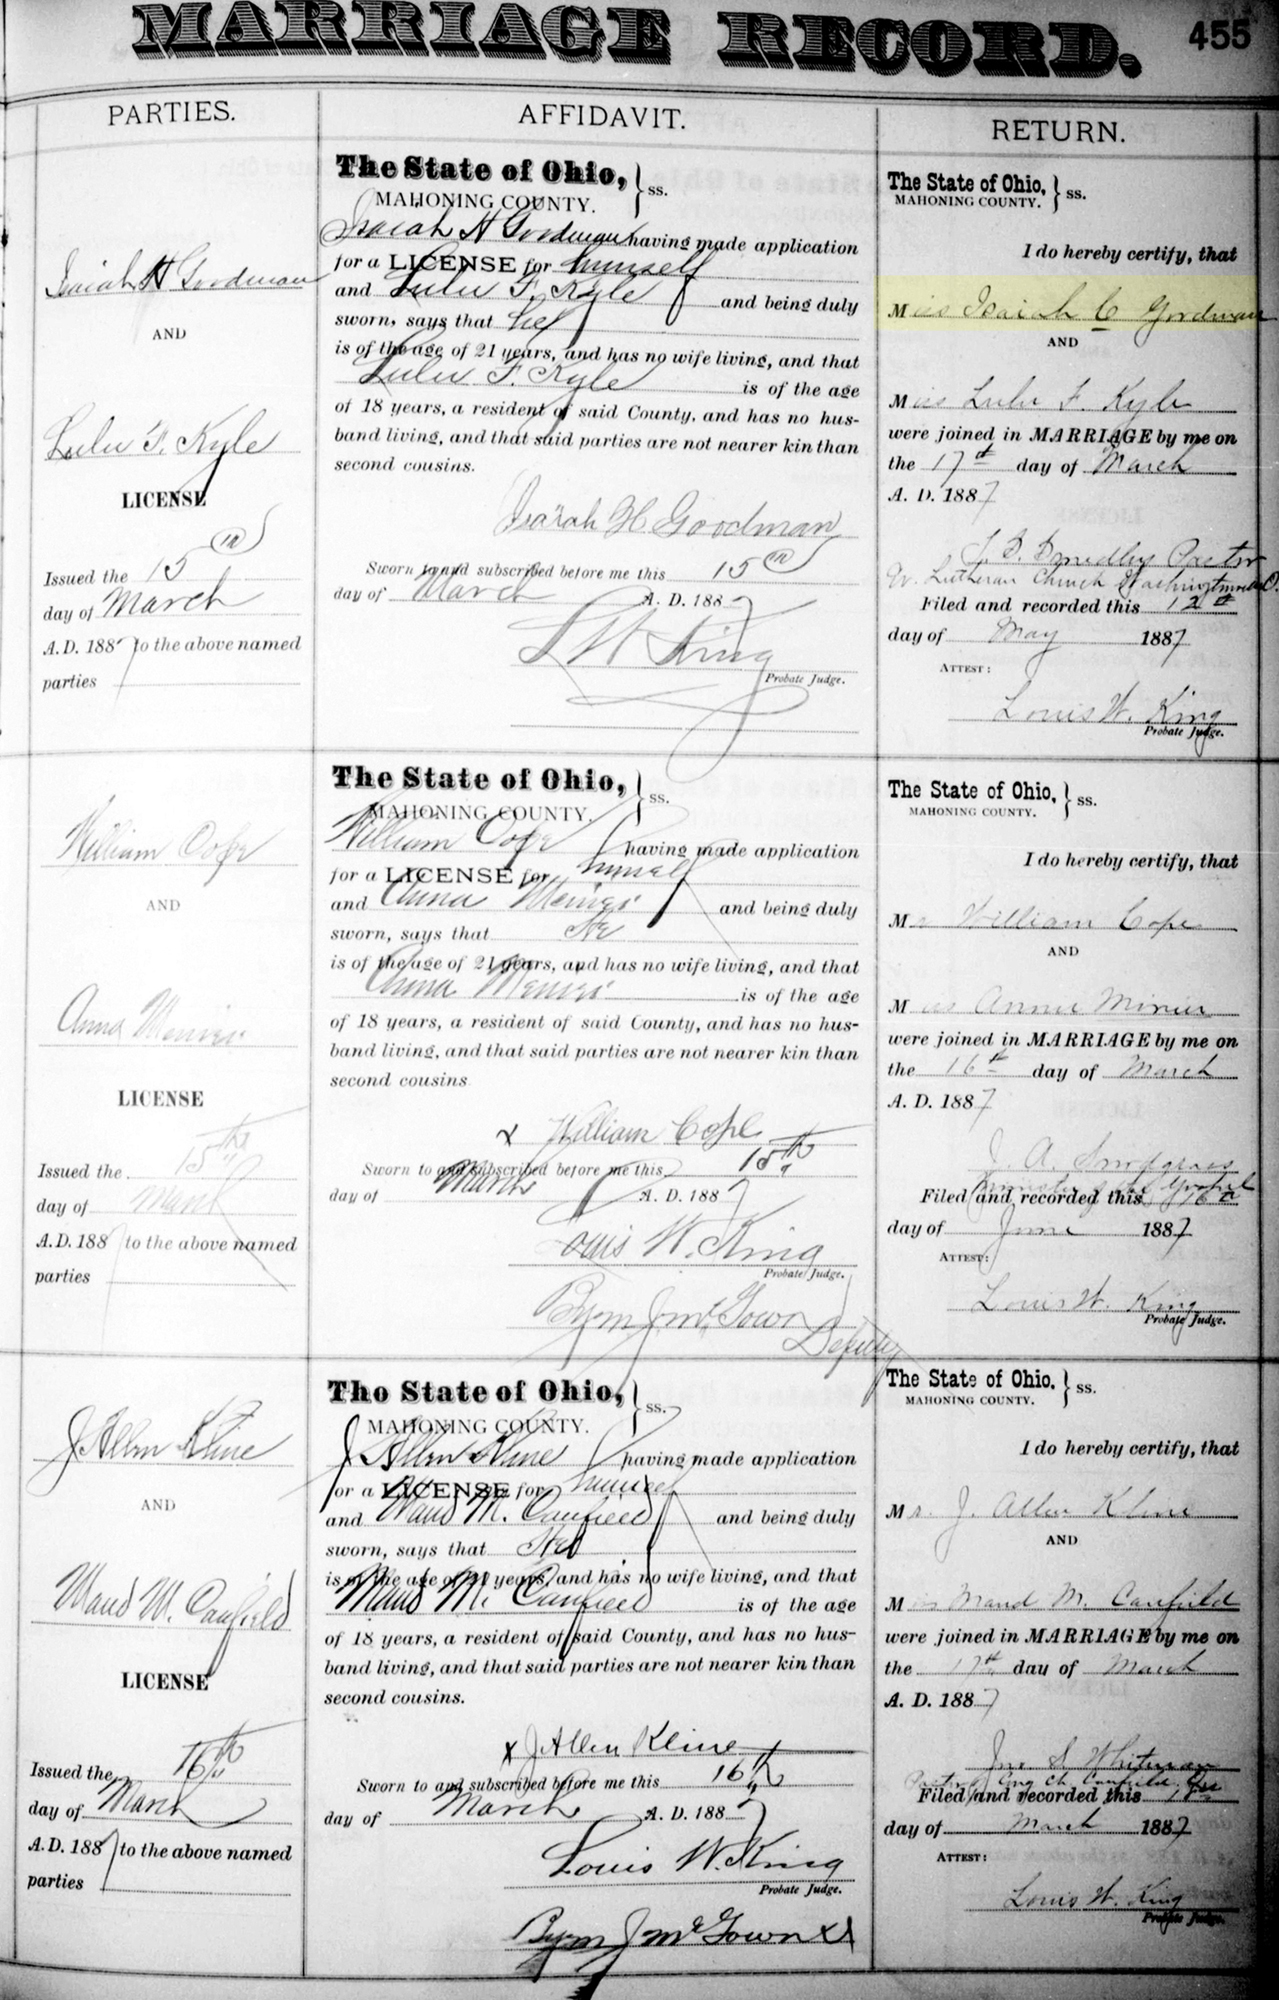 MARRIAGE RECORD.
455
PARTIES.
Isaiah H Goodman
AND
Lulu F. Kyle
LICENSE
Issued the 15th
day of March
A. D. 1887 to the above named
parties
AFFIDAVIT.
The State of Ohio, } ss.
MAHONING COUNTY.
Isaiah H Goodman having made application
for a LICENSE for himself
and Lulu F. Kyle and being duly
sworn, says that he
is of the age of 21 years, and has no wife living, and that
Lulu F. Kyle is of the age
of 18 years, a resident of said County, and has no hus-
band living, and that said parties are not nearer kin than
second cousins.
Isaiah H. Goodman
Sworn to and subscribed before me this 15th
day of March A. D. 1887
L W King
Probate Judge.
RETURN.
The State of Ohio, } ss.
MAHONING COUNTY.
I do hereby certify, that
Miss Isaiah C Goodman
AND
Miss Lulu F. Kyle
were joined in MARRIAGE by me on
the 17th day of March
A. D. 1887
Pastor
Lutheran Church
Filed and recorded this 12th
day of May 1887
ATTEST:
Louis W. King
Probate Judge.
William Cope
AND
Anna
LICENSE
Issued the 15th
day of March
A. D. 1887 to the above named
parties
The State of Ohio, } ss.
MAHONING COUNTY.
William Cope having made application
for a LICENSE for himself
and Anna and being duly
sworn, says that He
is of the age of 21 years, and has no wife living, and that
Anna is of the age
of 18 years, a resident of said County, and has no hus-
band living, and that said parties are not nearer kin than
second cousins
x William Cope
Sworn to and subscribed before me this 15th
day of March A. D. 1887
Louis W. King
Probate Judge.
By J McGown
Deputy
The State of Ohio, } ss.
MAHONING COUNTY.
I do hereby certify, that
Mr William Cope
AND
Miss Annie
were joined in MARRIAGE by me on
the 16th day of March
A. D. 1887
J. A. Snodgrass
Minister of the Gospel
Filed and recorded this 16th
day of June 1887
ATTEST:
Louis W. King
Probate Judge.
J Allen Kline
AND
Maud M. Canfield
LICENSE
Issued the 16th
day of March
A. D. 1887 to the above named
parties
The State of Ohio, } ss.
MAHONING COUNTY.
J Allen Kline having made application
or a LICENSE for himself
and Maud M. Canfield and being duly
sworn, says that He
is of the age of 21 years, and has no wife living, and that
Maud M. Canfield is of the age
of 18 years, a resident of said County, and has no hus-
band living, and that said parties are not nearer kin than
second cousins.
x J Allen Kline
Sworn to and subscribed before me this 16th
day of March A. D. 1887
Louis W. King
Probate Judge.
By J McGown
The State of Ohio, } ss.
MAHONING COUNTY.
I do hereby certify, that
Mr. J. Allen Kline
AND
Miss Maud M. Canfield
were joined in MARRIAGE by me on
the 17th day of March
A. D. 1887
Jno S. Whitman
Pastor Ch. Canfield
Filed and recorded this 18th
day of March 1887
ATTEST:
Louis W. King
Probate Judge.